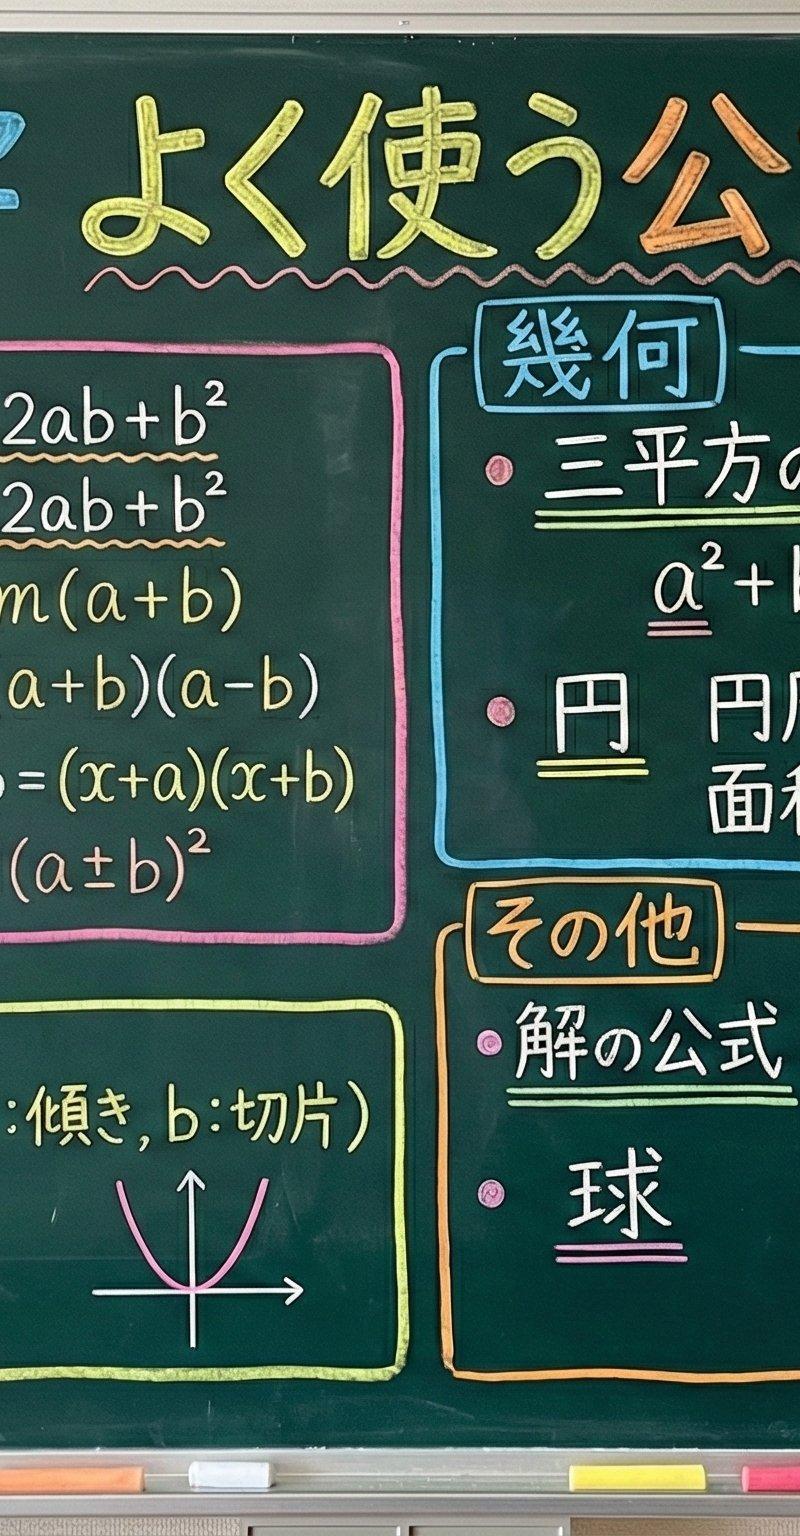 よく使う公
2ab+b²
2ab+b²
m(a+b)
(a+b)(a-b)
=(x+a)(x+b)
(a±b)²
:傾き, b:切片)
幾何
三平方の
a²+b
円 円周
面積
その他
解の公式
球